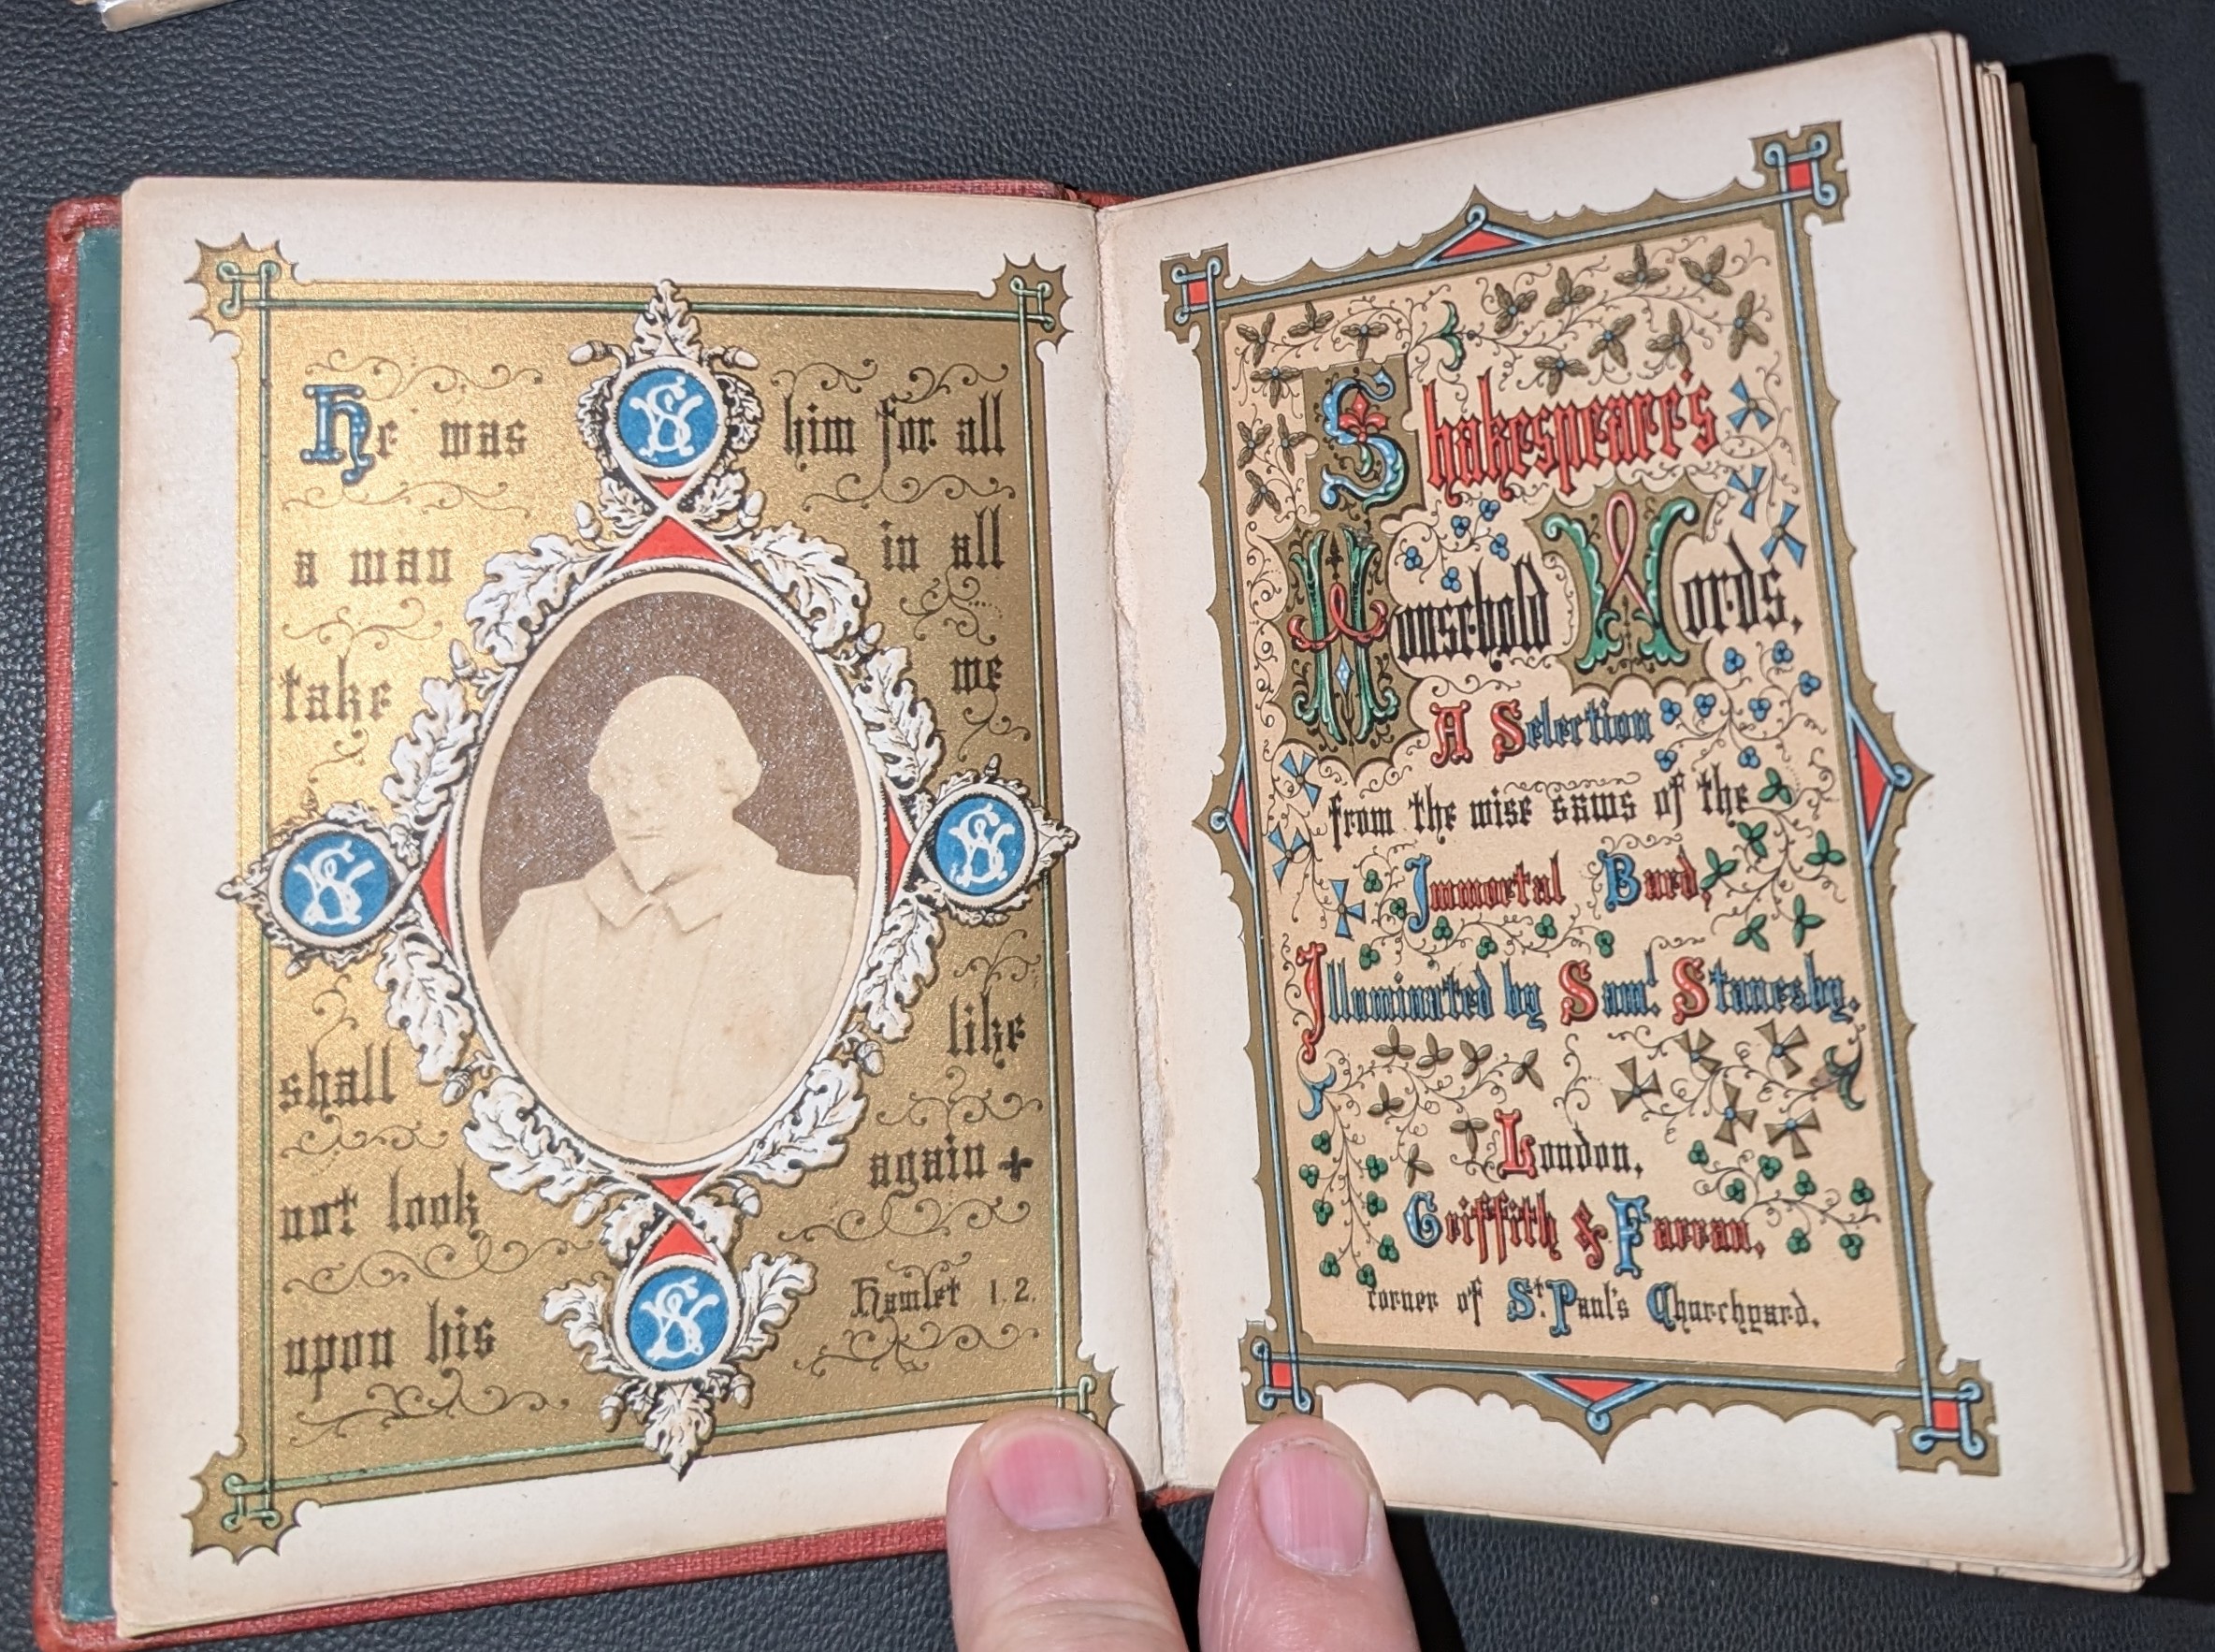 He was
a man
take
him for all
in all
we
shall
not look
upon his
like
again
Hamlet 1. 2.
Shakespeare's
Household Words,
A Selection
from the wise saws of the
Immortal Bard,
Illuminated by Saml. Stanesby.
London,
Griffith & Farran,
corner of St. Paul's Churchyard.